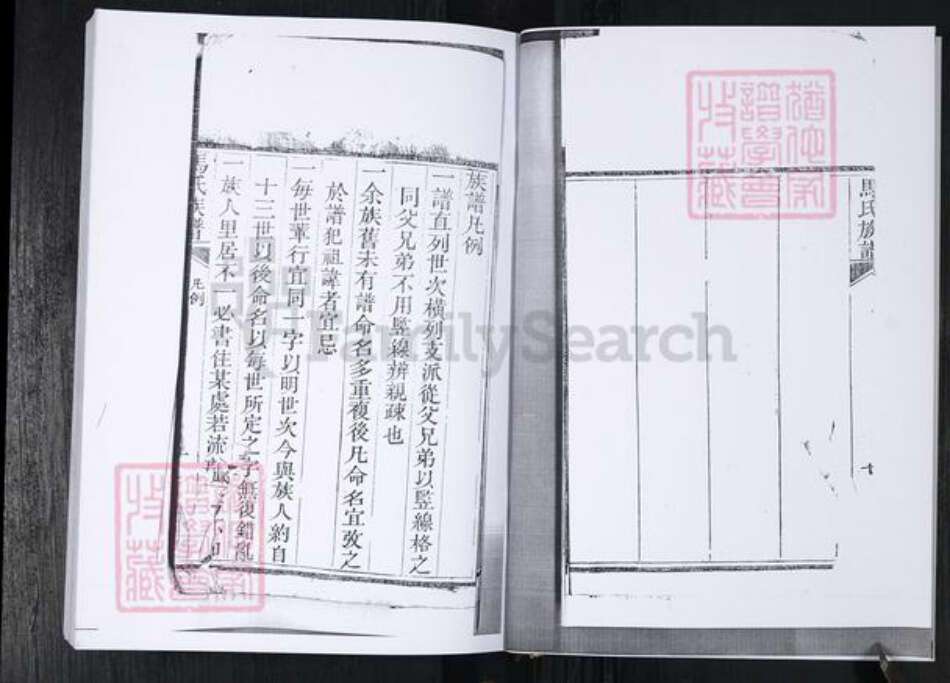 馬氏族譜
七
族譜凡例
一譜直列世次橫列支派從父兄弟以竪線格之
同父兄弟不用竪線辨親疎也
一余族舊未有譜命名多重複後凡命名宜攷之
於譜犯祖諱者宜忌
一每世輩行宜同一字以明世次今與族人約自
十三世以後命名以每世所定之字無復錯亂
一族人里居不一必書往某處若流
馬氏族譜
凡例
FamilySearch
收藏
譜學會
收藏